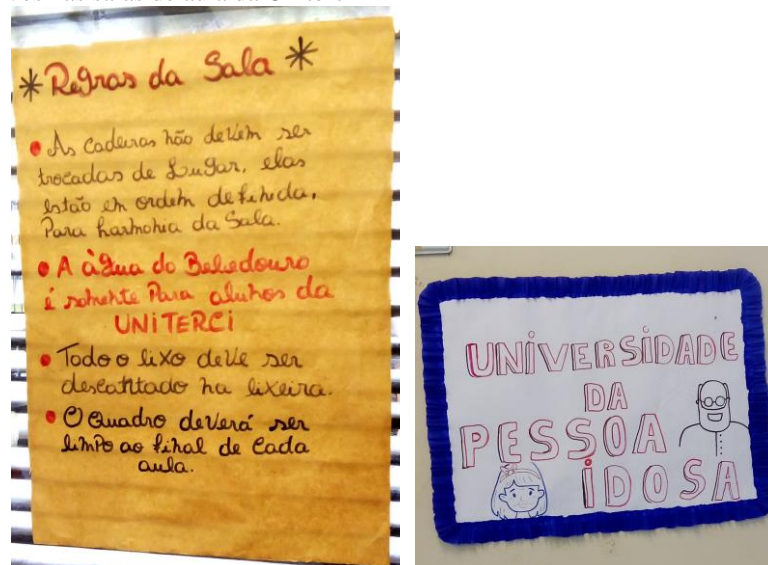 * Regras da Sala *
• As cadeiras não devem ser
trocadas de Lugar, elas
estão em ordem definida,
Para harmonia da Sala.
• A àgua do Bebedouro
é somente Para alunos da
UNITERCI
• Todo o lixo deve ser
descartado na lixeira.
• O Quadro deverá ser
limpo ao final de Cada
aula.
UNIVERSIDADE
DA
PESSOA
IDOSA